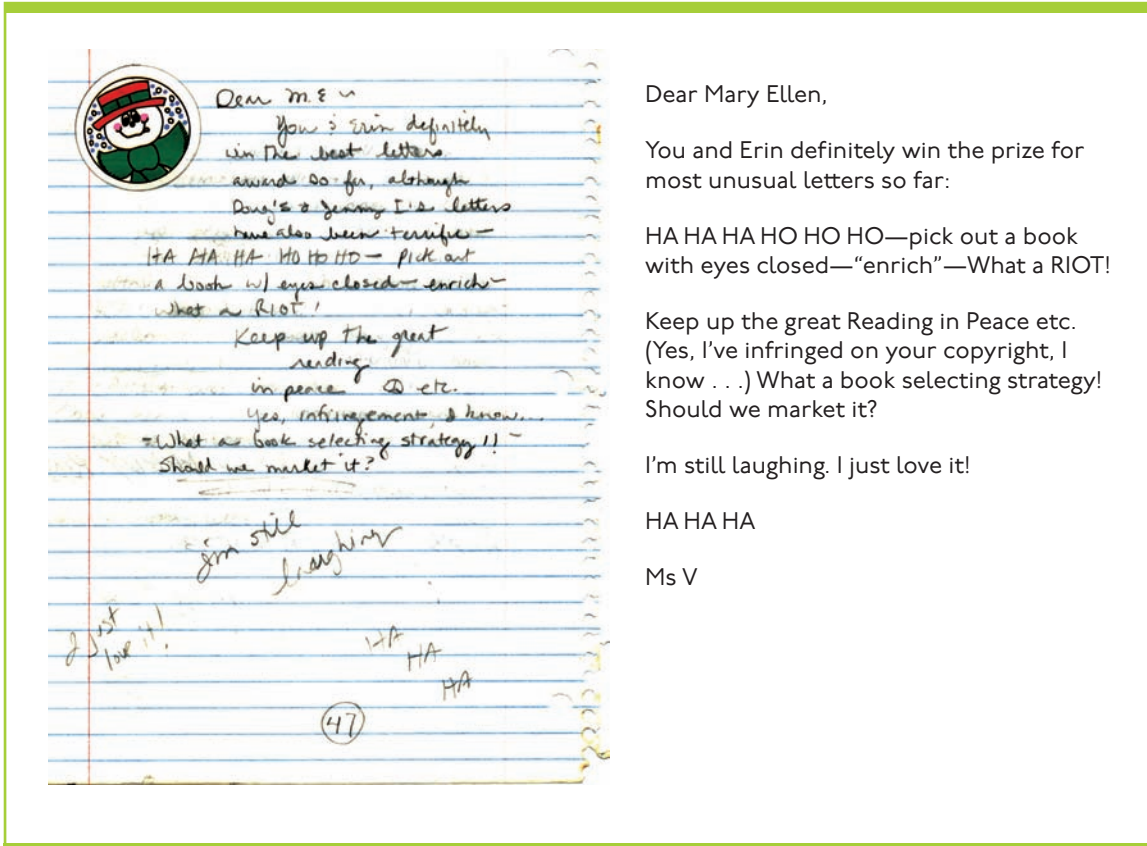 Dear M.E.
You & Erin definitely
win the best letters
award so far, although
Doug's & Jenny I's letters
have also been terrific —
HA HA HA HO HO HO — pick out
a book w/ eyes closed — enrich —
what a RIOT!
Keep up the great
reading
in peace etc.
Yes, infringement, I know...
- What a book selecting strategy!! -
Should we market it?
I'm still
laughing
I just
love it!
HA
HA
HA
47
Dear Mary Ellen,
You and Erin definitely win the prize for
most unusual letters so far:
HA HA HA HO HO HO—pick out a book
with eyes closed—“enrich”—What a RIOT!
Keep up the great Reading in Peace etc.
(Yes, I’ve infringed on your copyright, I
know . . .) What a book selecting strategy!
Should we market it?
I’m still laughing. I just love it!
HA HA HA
Ms V